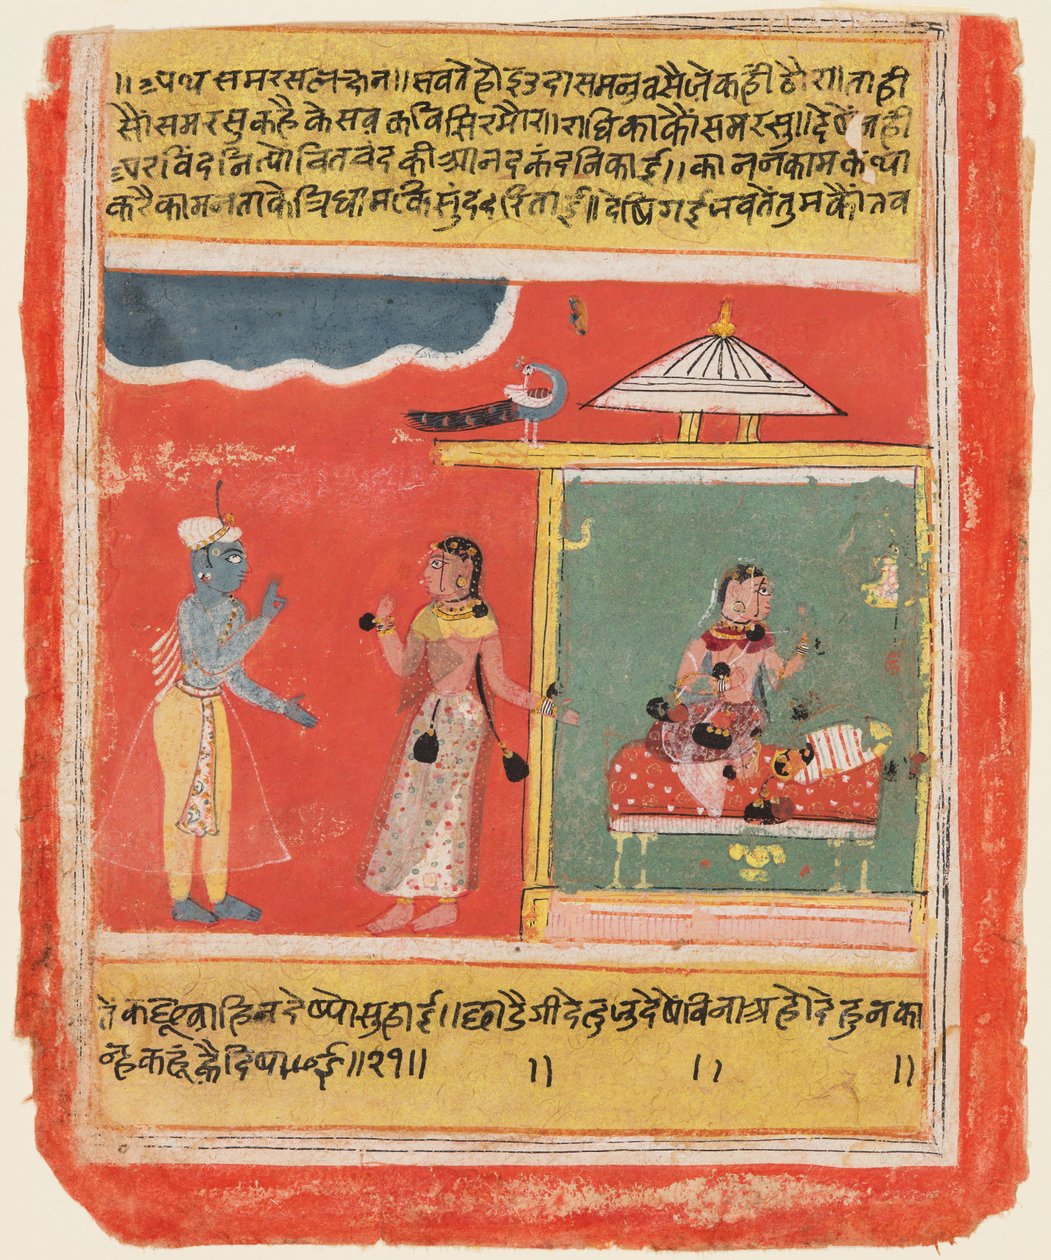 ॥अथ समरसलछन॥ सवते होइ उदास मन वसै जे कही ठौर॥ ताही
सौं समरसु कहै केसव कवि सिरमौर॥ राधिका कौ समरसु॥ देषै नही
अरविंदनि त्यो चित चंद की आनदकंद निकाई॥ कानन काम कथा
करै कामन ताकै त्रिधाम कि सुंदरिताई॥ देषि गई जवतें तुम कौं तव
तें कछू वाहि न देष्यो सुहाई॥ छाडैगी देह जु देषै विना अहो देहु न का
न्ह कहूं ह्वै दिषाई॥२१॥ ॥ ॥ ॥